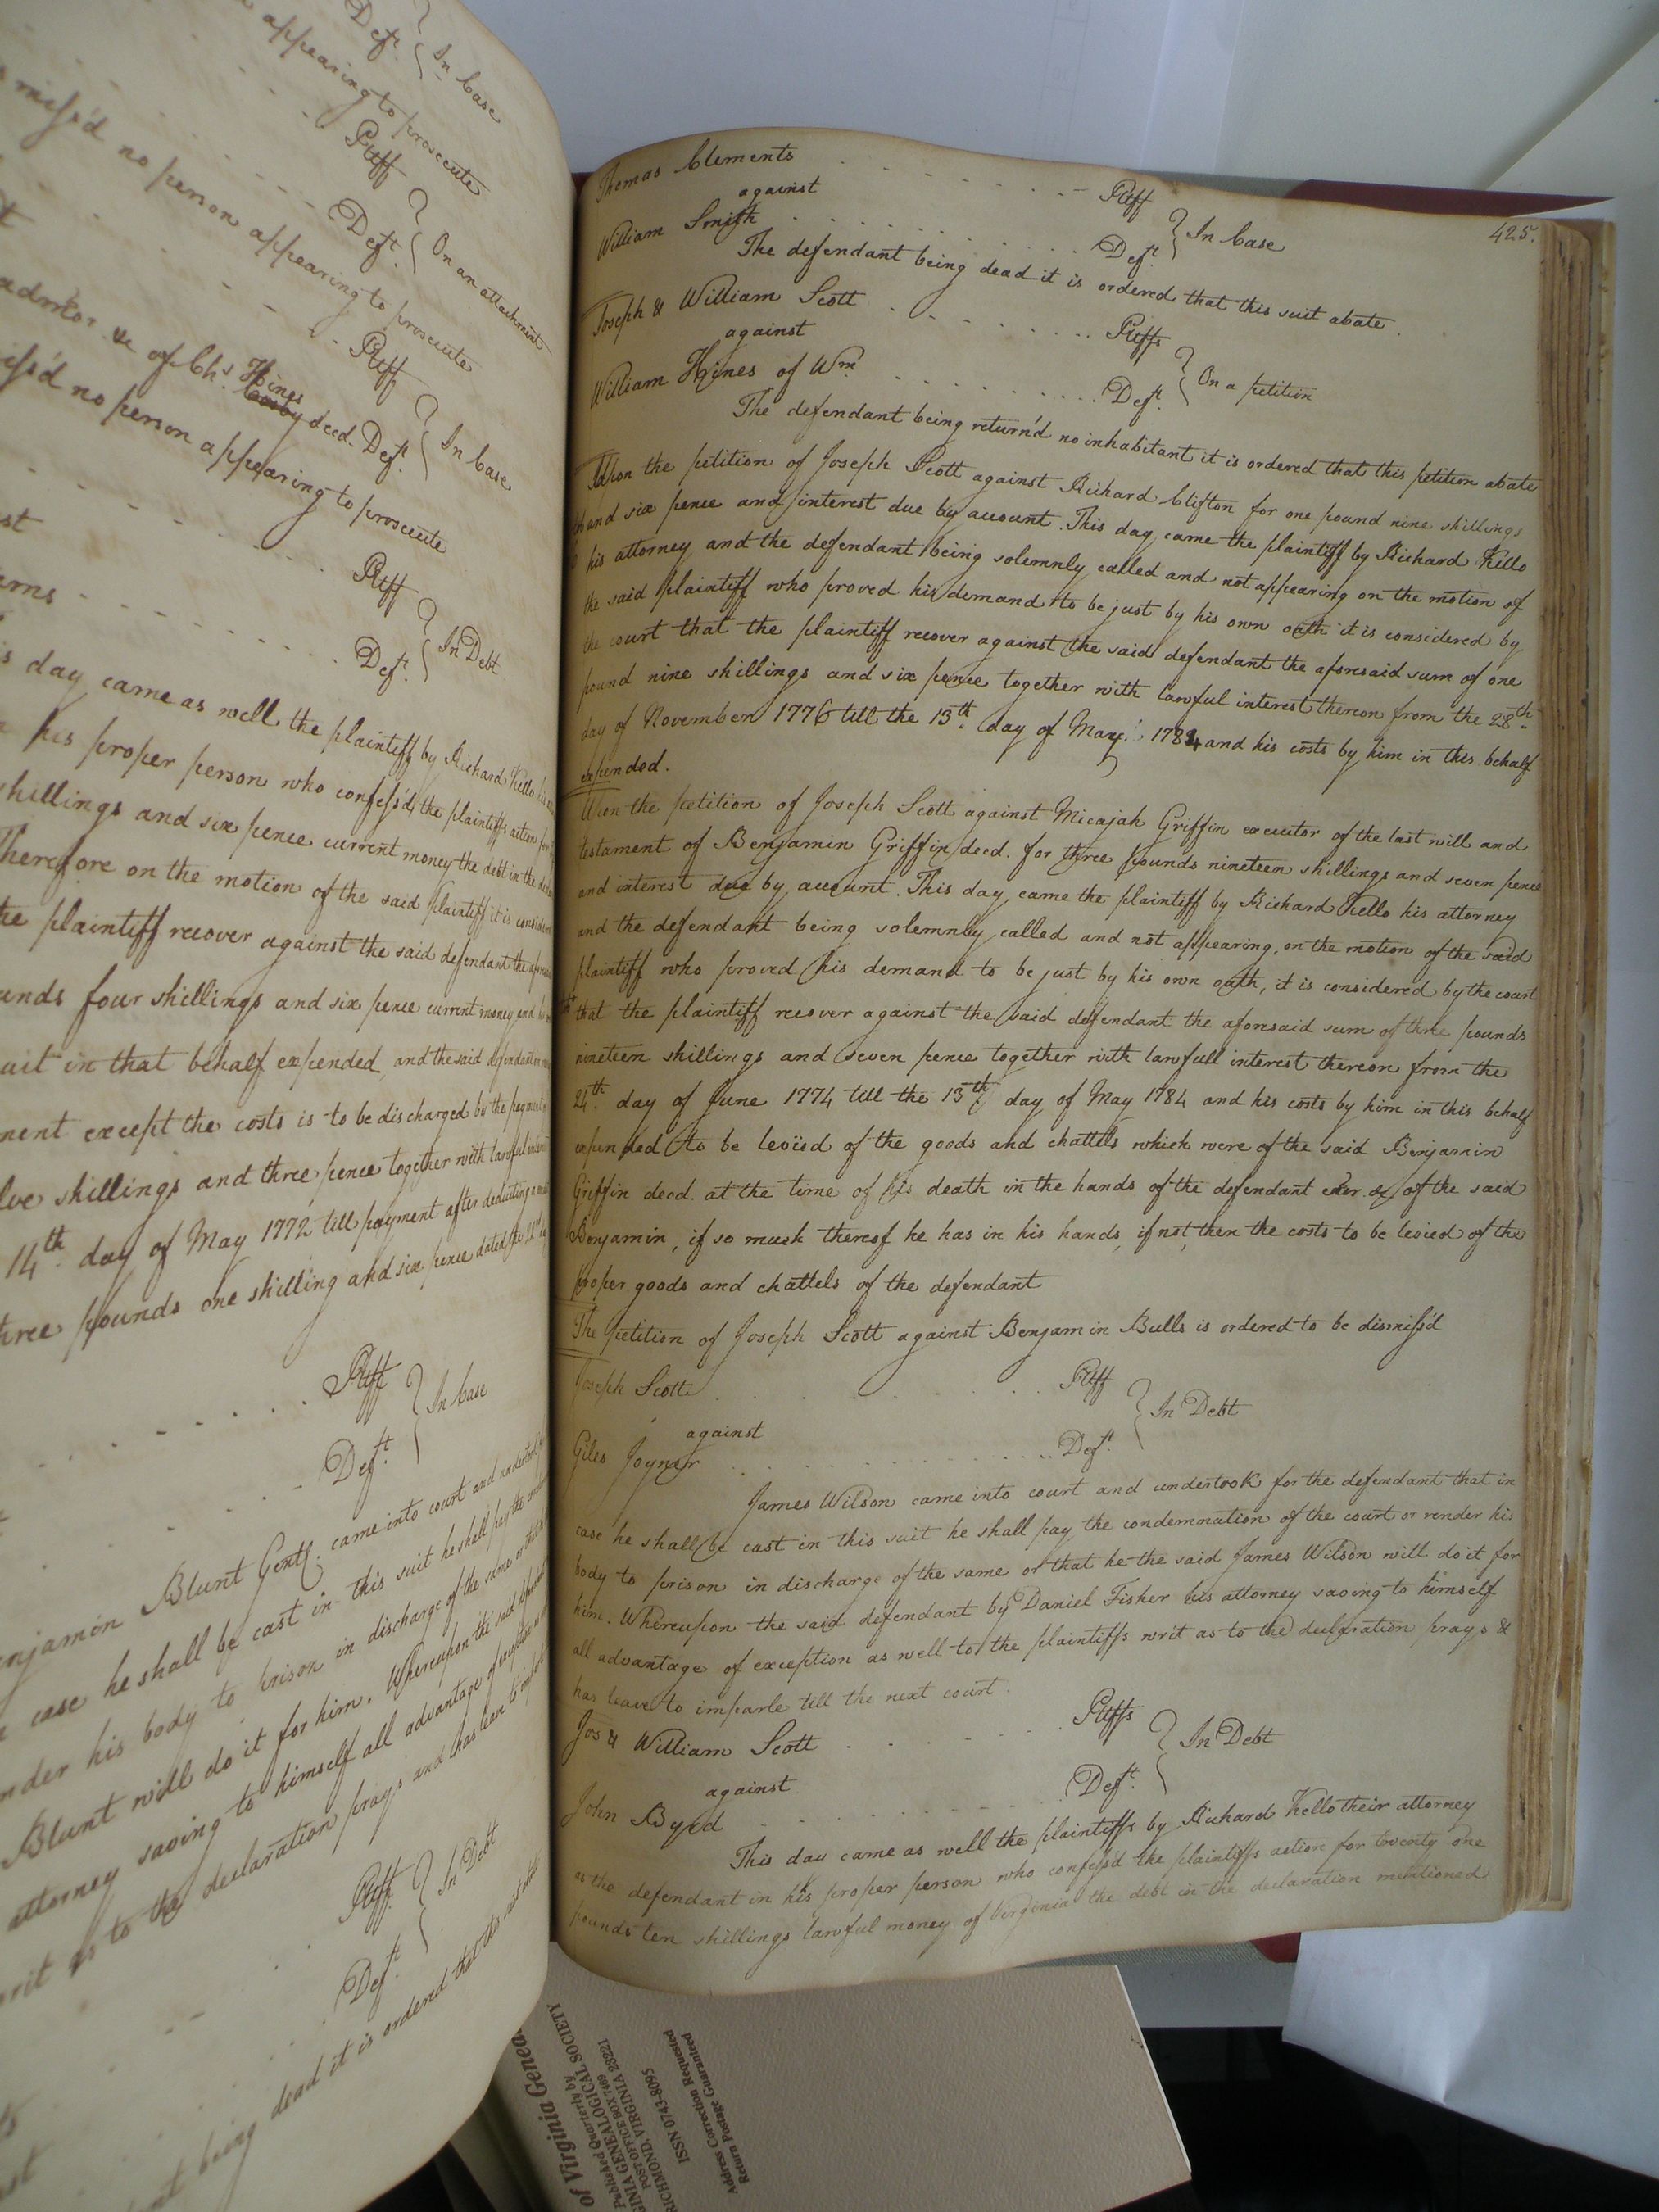 Deft. } In Case
appearing to prosecute
Pltff
Deft. } On an attachment
miss'd no person appearing to prosecute
Pltff
admor. &c of Chs. Hines deed. Deft. } In Case
iss'd no person appearing to prosecute
Pltff
erns Deft. } In Debt
s day came as well the plaintiff by Richard Kello his
his proper person who confess'd the plaintiffs action for
shillings and six pence current money the debt in the
Therefore on the motion of the said plaintiff it is consider
the plaintiff recover against the said defendant the afores
unds four shillings and six pence current money and
uit in that behalf expended, and the said defendant
ment except the costs is to be discharged by the payment
lve shillings and three pence together with lawful
14th. day of May 1772 till payment after deducting
three pounds one shilling and six pence dated the 22d
Pltff } In Case
Deft.
enjamin Blunt Gentl. came into court and undertook
case he shall be cast in this suit he shall pay the
nder his body to prison in discharge of the same or that
Blunt will do it for him. Whereupon the said
attorney saving to himself all advantage of exception
writ as to the declaration prays and has leave to
Pltff } In Debt
Deft.
being dead it is ordered that this suit
425.
Thomas Clements Pltff
against } In Case
William Smith Deft.
The defendant being dead it is ordered that this suit abate.
Joseph & William Scott Pltffs
against } On a petition
William Hines of Wm. Deft.
The defendant being return'd no inhabitant it is ordered that this petition abate
Upon the petition of Joseph Scott against Richard Clifton for one pound nine shillings
and six pence and interest due by account. This day came the plaintiff by Richard Kello
his attorney and the defendant being solemnly called and not appearing on the motion of
the said plaintiff who proved his demand to be just by his own oath it is considered by
the court that the plaintiff recover against the said defendant the aforesaid sum of one
pound nine shillings and six pence together with lawful interest thereon from the 28th.
day of November 1776 till the 13th. day of May 1784 and his costs by him in this behalf
expended.
Upon the petition of Joseph Scott against Micajah Griffin executor of the last will and
testament of Benjamin Griffin deed. for three pounds nineteen shillings and seven pence
and interest due by account. This day came the plaintiff by Richard Kello his attorney
and the defendant being solemnly called and not appearing, on the motion of the said
plaintiff who proved his demand to be just by his own oath, it is considered by the court
that the plaintiff recover against the said defendant the aforesaid sum of three pounds
nineteen shillings and seven pence together with lawfull interest thereon from the
24th. day of June 1774 till the 13th. day of May 1784 and his costs by him in this behalf
expended to be levied of the goods and chattels which were of the said Benjamin
Griffin deed. at the time of his death in the hands of the defendant exer. &c of the said
Benjamin, if so much thereof he has in his hands, if not, then the costs to be levied of the
proper goods and chattels of the defendant
The petition of Joseph Scott against Benjamin Bulls is ordered to be dismiss'd
Joseph Scott Pltff
against } In Debt
Giles Joyner Deft.
James Wilson came into court and undertook for the defendant that in
case he shall be cast in this suit he shall pay the condemnation of the court or render his
body to prison in discharge of the same or that he the said James Wilson will do it for
him. Whereupon the said defendant by Daniel Fisher his attorney saving to himself
all advantage of exception as well to the plaintiffs writ as to the declaration prays &
has leave to imparle till the next court.
Jos & William Scott Pltffs
against } In Debt
John Byrd Deft.
This day came as well the plaintiffs by Richard Kello their attorney
as the defendant in his proper person who confess'd the plaintiffs action for twenty one
pounds ten shillings lawful money of Virginia the debt in the declaration mentioned
of Virginia Genea
Published Quarterly by
GINIA GENEALOGICAL SOCIETY
POST OFFICE BOX 7469
RICHMOND, VIRGINIA 23221
ISSN 0743-8095
Address Correction Requested
Return Postage Guaranteed